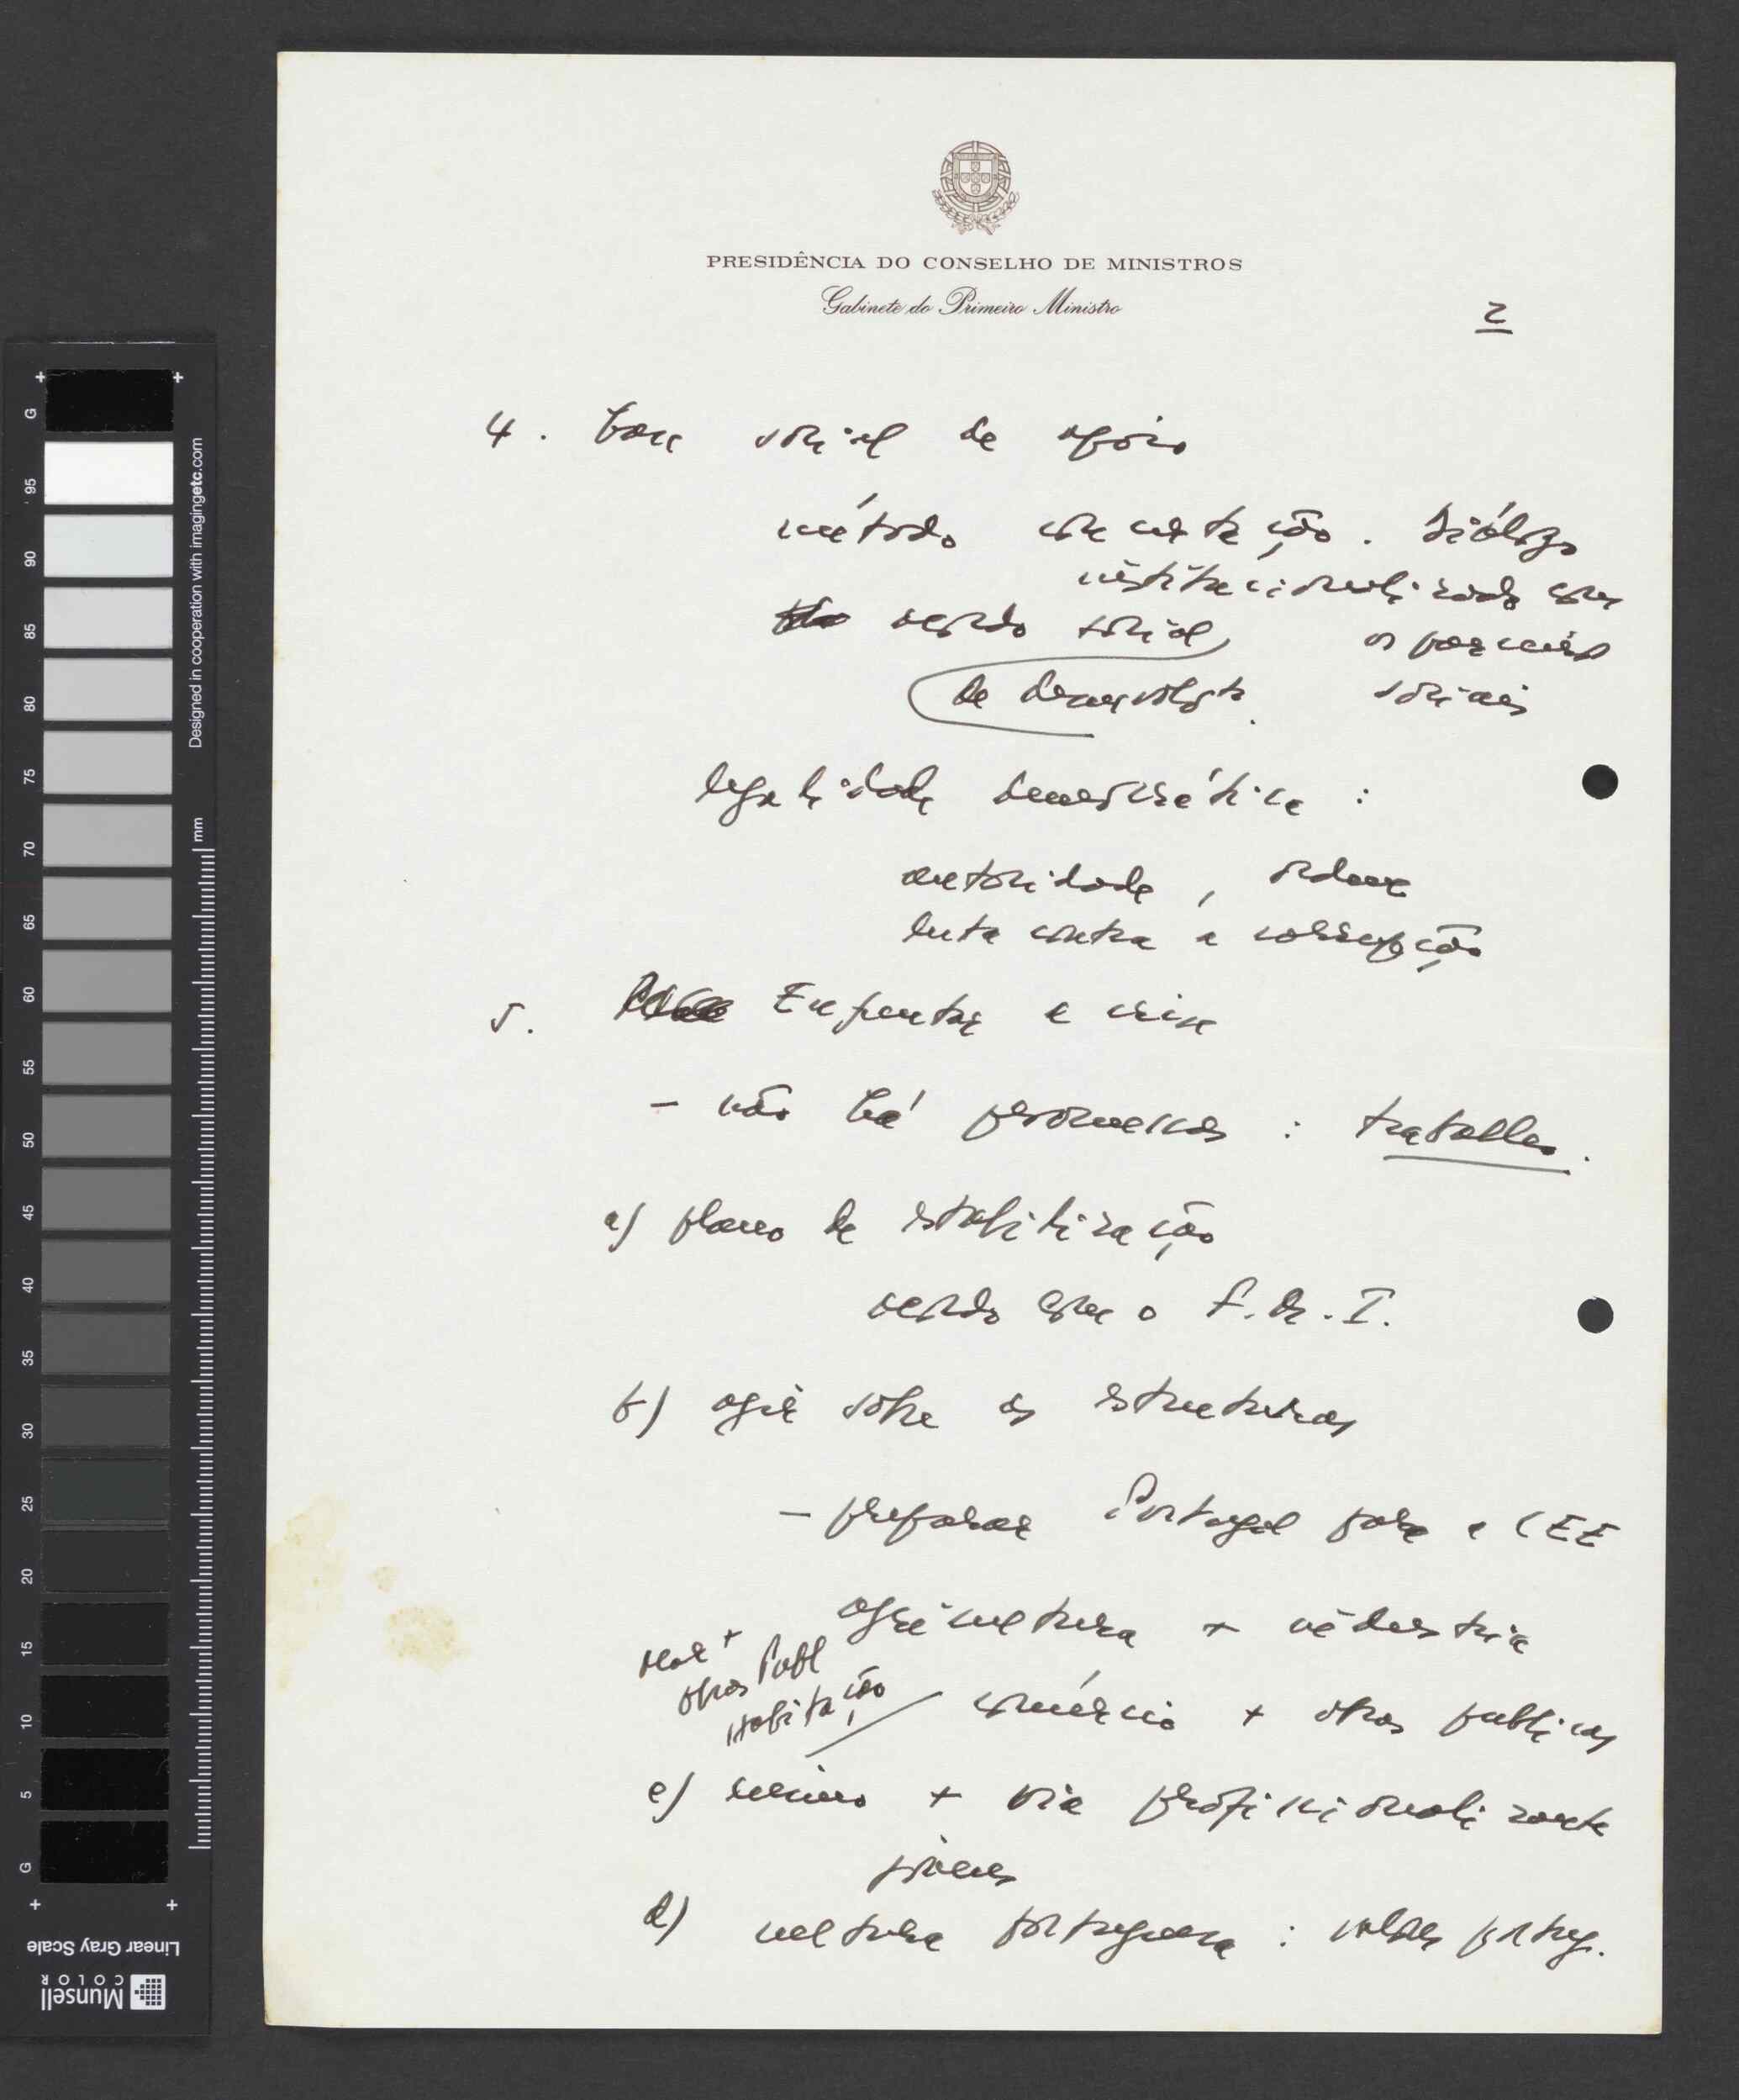 PRESIDÊNCIA DO CONSELHO DE MINISTROS
Gabinete do Primeiro Ministro
2
4. base social de apoio
método concertação. Diálogo
institucionalizado com
acordo social os parceiros
de desenvolvto. sociais
legalidade democrática :
autoridade, ordem
luta contra a corrupção
5. Enfrentar a crise
- não há promessas : trabalho.
a) plano de estabilização
acordo com o F.M.I.
b) agir sobre as estruturas
- preparar Portugal para a CEE
agricultura + indústria
mar +
obras Publ
Habitação
comércio + obras publicas
c) ensino + via profissionalizante
jovens
d) cultura portuguesa : valores portug.
Designed in cooperation with imagingetc.com
mm
G 95 90 85 80 75 70 65 60 55 50 45 40 35 30 25 20 15 10 5 G
Linear Gray Scale
Munsell
COLOR